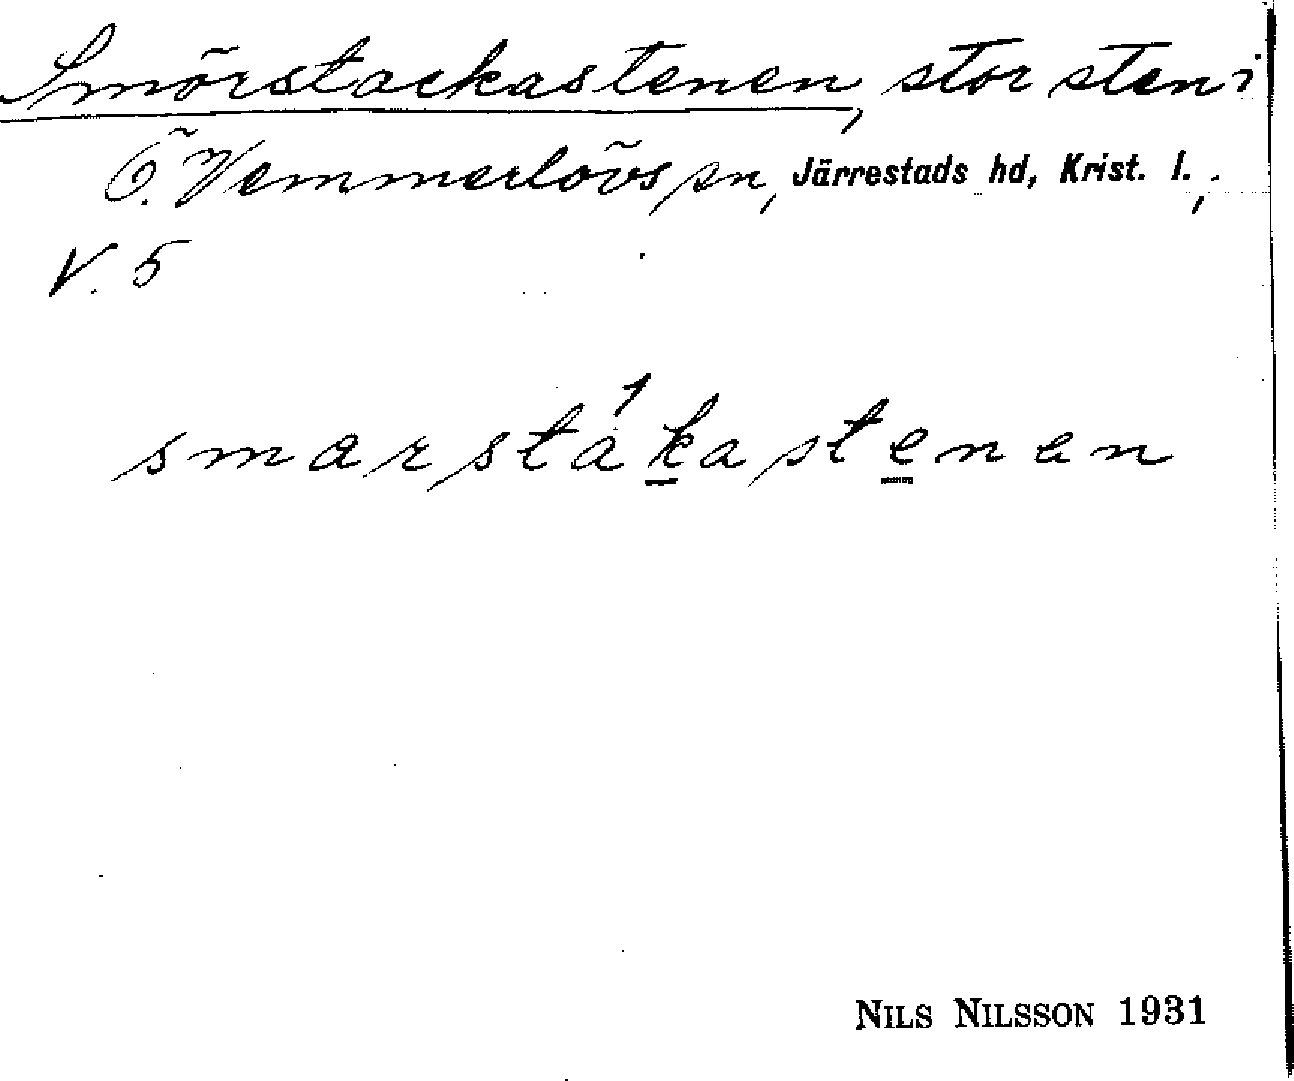 Smörstackastenen, stor sten i
Ö. Vemmerlövs sn, Järrestads hd, Krist. l.,
V. 5
smarstá1kastenen
NILS NILSSON 1931